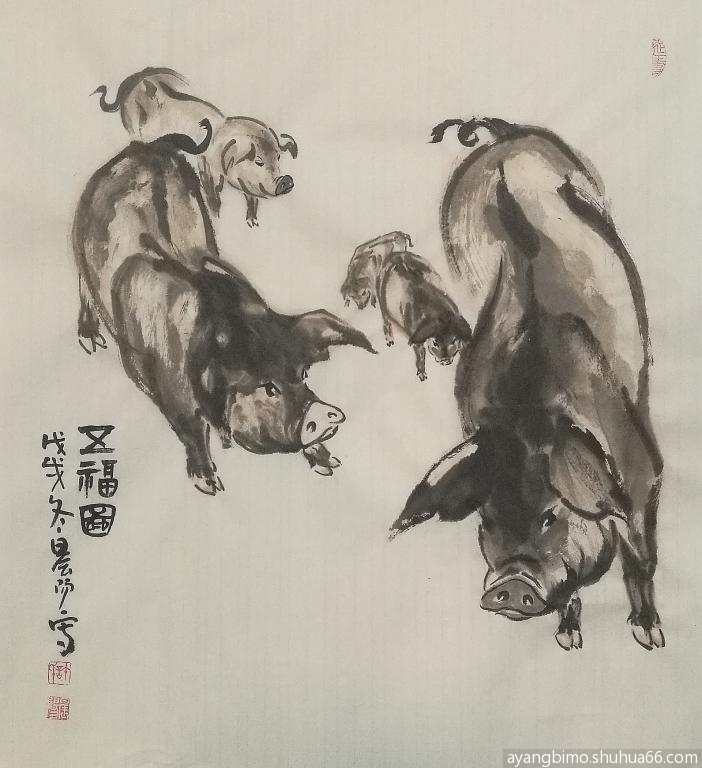 五福圖
戊戌冬晨陽寫
ayangbimo.shuhua66.com